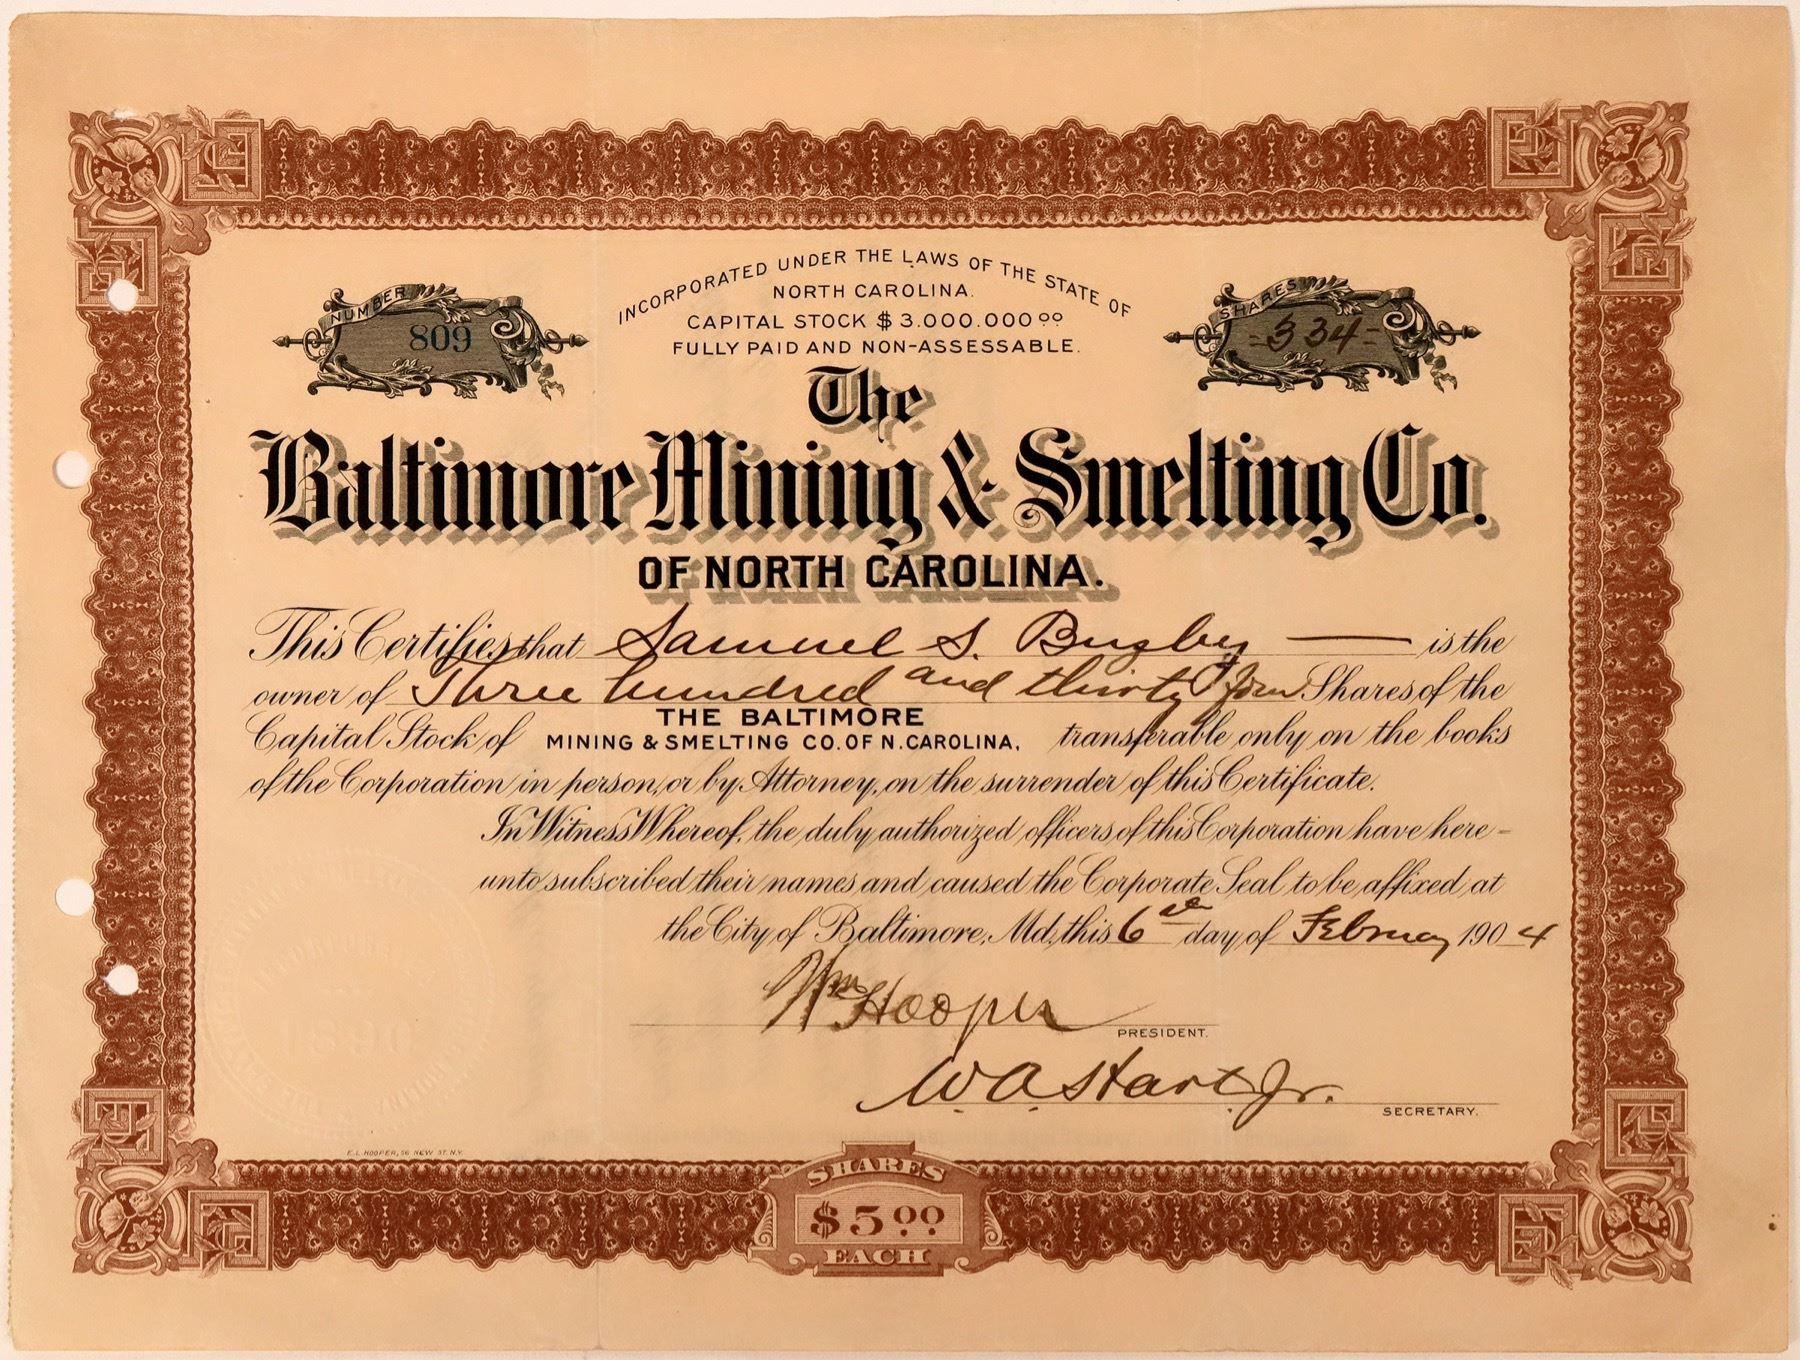 INCORPORATED UNDER THE LAWS OF THE STATE OF
NORTH CAROLINA.
CAPITAL STOCK $3.000.000 00
FULLY PAID AND NON-ASSESSABLE.
NUMBER
809
SHARES
=334=
The
Baltimore Mining & Smelting Co.
OF NORTH CAROLINA.
This Certifies that Samuel S. Bugbey is the
owner of Three hundred and thirty four Shares of the
Capital Stock of THE BALTIMORE MINING & SMELTING CO. OF N. CAROLINA, transferable only on the books
of the Corporation in person, or by Attorney, on the surrender of this Certificate.
In Witness Whereof, the duly authorized officers of this Corporation have here-
unto subscribed their names and caused the Corporate Seal to be affixed at
the City of Baltimore, Md., this 6th day of February 1904
Wm Hooper
PRESIDENT.
W. A. Hart. Jr.
SECRETARY.
E.L. HOOPER, 56 NEW ST. N.Y.
SHARES
$5 00
EACH